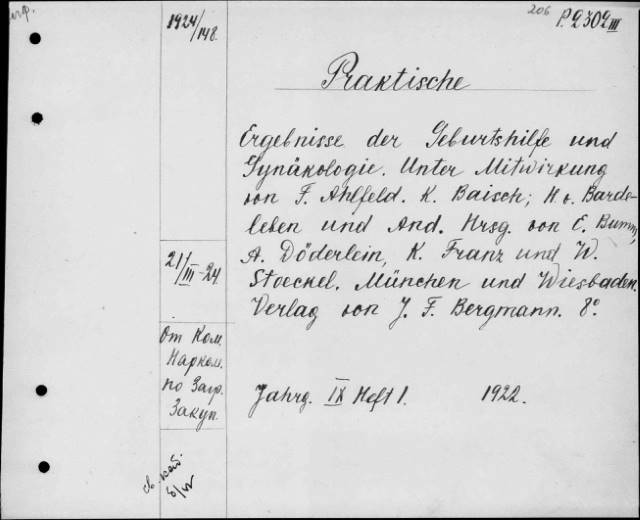 206 P.2302 III
1924/148.
Praktische
Ergebnisse der Geburtshilfe und
Gynäkologie. Unter Mitwirkung
von F. Ahlfeld. K. Baisch; H. v. Bards-
leben und And. Hrsg. von E. Bumm,
A. Döderlein, K. Franz und W.
Stoeckel. München und Wiesbaden.
Verlag von J. F. Bergmann. 8°.
21/III-24.
От Ком.
Нарком.
по Загр.
Закуп.
Jahrg. IX Heft 1. 1922.